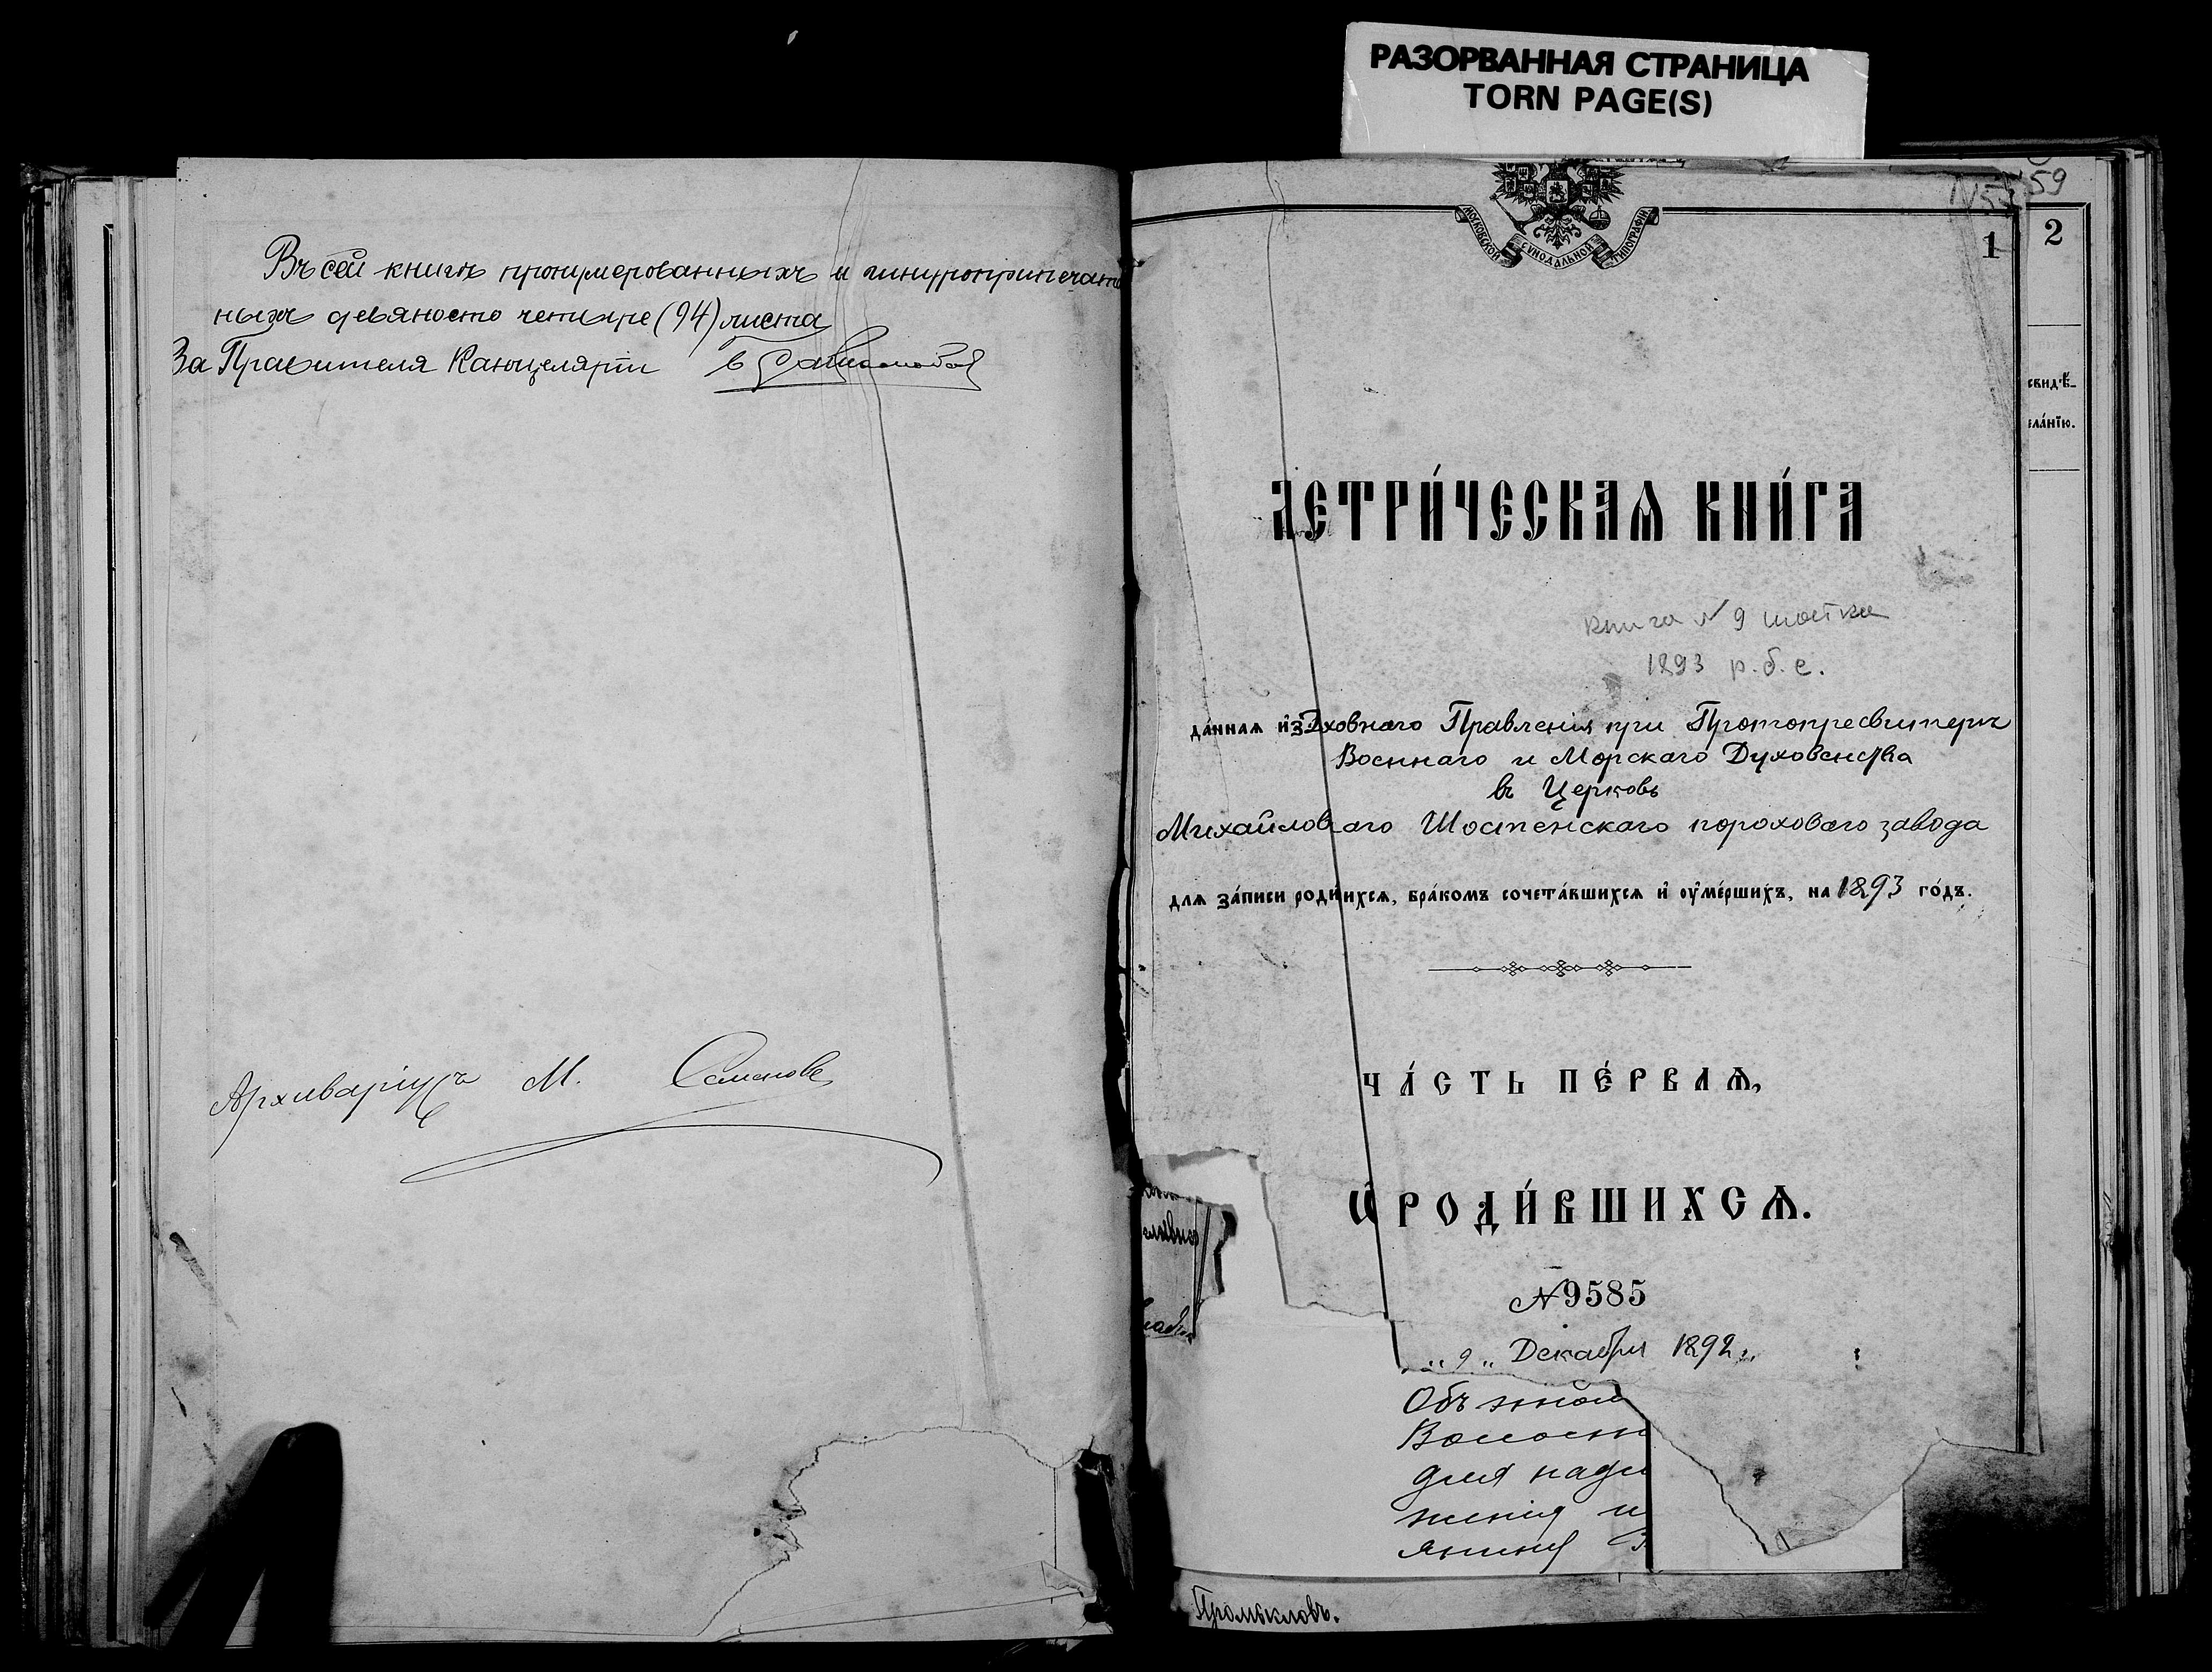 РАЗОРВАННАЯ СТРАНИЦА
TORN PAGE(S)
Въ сей книгѣ пронумерованныхъ и шнуроприпечатан
ныхъ девяносто четыре (94) листа
За Правителя Канцеляріи
Архиваріусъ М. Семеновъ
59
1
2
МОСКОВСКОЙ СУНОДАЛЬНОЙ ТИПОГРАФІИ
свидѣ-
ла́нїю.
ЕТРИ́ЧЕСКАѦ КНИ́ГА
книга N 9 шостка
1893 р.б.с.
да́ннаѧ и҆з Дховнаго Правленія при Протопресвитерѣ
Военнаго и Морскаго Духовенства
въ Церковь
Михайловскаго Шостенскаго пороховаго завода
длѧ за́писи роди́ихсѧ, бра́комъ сочета́вшихсѧ и҆ ѹ҆ме́ршихъ, на 1893 го́дъ.
ЧА́СТЬ ПЕ́РВАѦ,
Ѡ҆ РОДИ́ВШИХСѦ.
N 9585
„ 9 „ Декабря 1892 „
славно
Объ
для
Промысловъ.